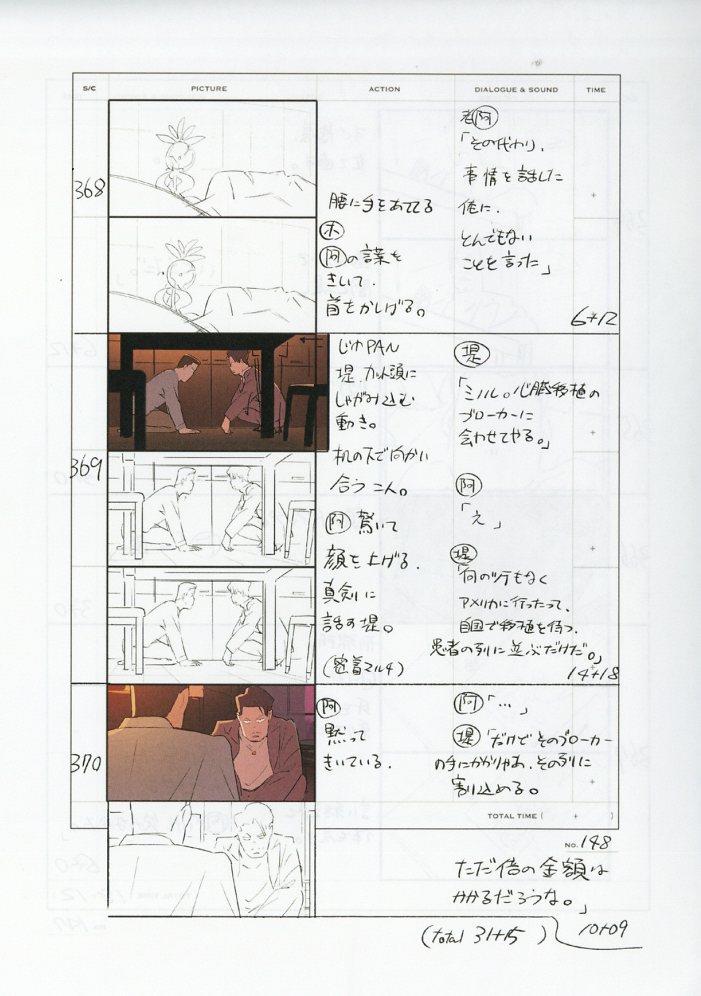 S/C PICTURE ACTION DIALOGUE & SOUND TIME
368
腰に手をあてる
木
阿の言葉を
きいて、
首をかしげる。
老阿
「その代わり、
事情を話した
俺に、
とんでもない
ことを言った」
6+12
369
じわPAN
堤、カット頭に
しゃがみ込む
動き。
机の下で向かい
合う二人。
阿 驚いて
顔を上げる。
真剣に
話す堤。
(密着マルチ)
堤
「ミノル。心臓移植の
ブローカーに
会わせてやる。」
阿
「え」
堤
「何のツテもなく
アメリカに行ったって、
自国で移植を待つ、
患者の列に並ぶだけだ。」
14+18
370
阿
黙って
きいている。
阿「…」
堤「だけどそのブローカー
の手にかかりゃあ、その列に
割り込める。
TOTAL TIME ( + )
NO. 148
ただ倍の金額は
かかるだろうな。」
10+09
(total 31+15 )